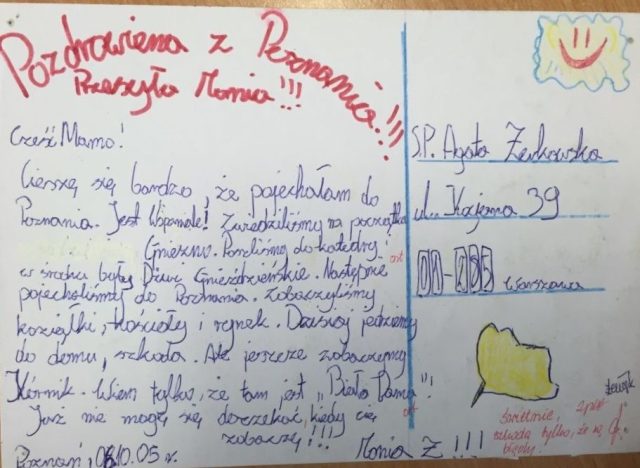 Pozdrowiena z Poznania!!!
Przesyła Monia!!!
Cześć Mamo!
Cieszę się bardzo, że pojechałam do
Poznania. Jest Wspaniale! Zwiedziliśmy na początku
Gniezno. Poszliśmy do katedry i
w środku były Dżwi Gnieździeńskie. Następnie
pojechaliśmy do Poznania. Zobaczyliśmy
koziołki, kościoły i rynek. Dzisiaj jedziemy
do domu, szkoda. Ale jeszcze zobaczymy
Kórnik. Wiem tylko, że tam jest "Biała Dama".
Już nie mogę się doczekać, kiedy cię
zobaczę!!!
Monia Ż!!!
Poznań, 10.05 r.
S.P. Agata
ul. 39
01-
Warszawa
ort
ort
Świetnie,
szkoda tylko, że są
błędy!